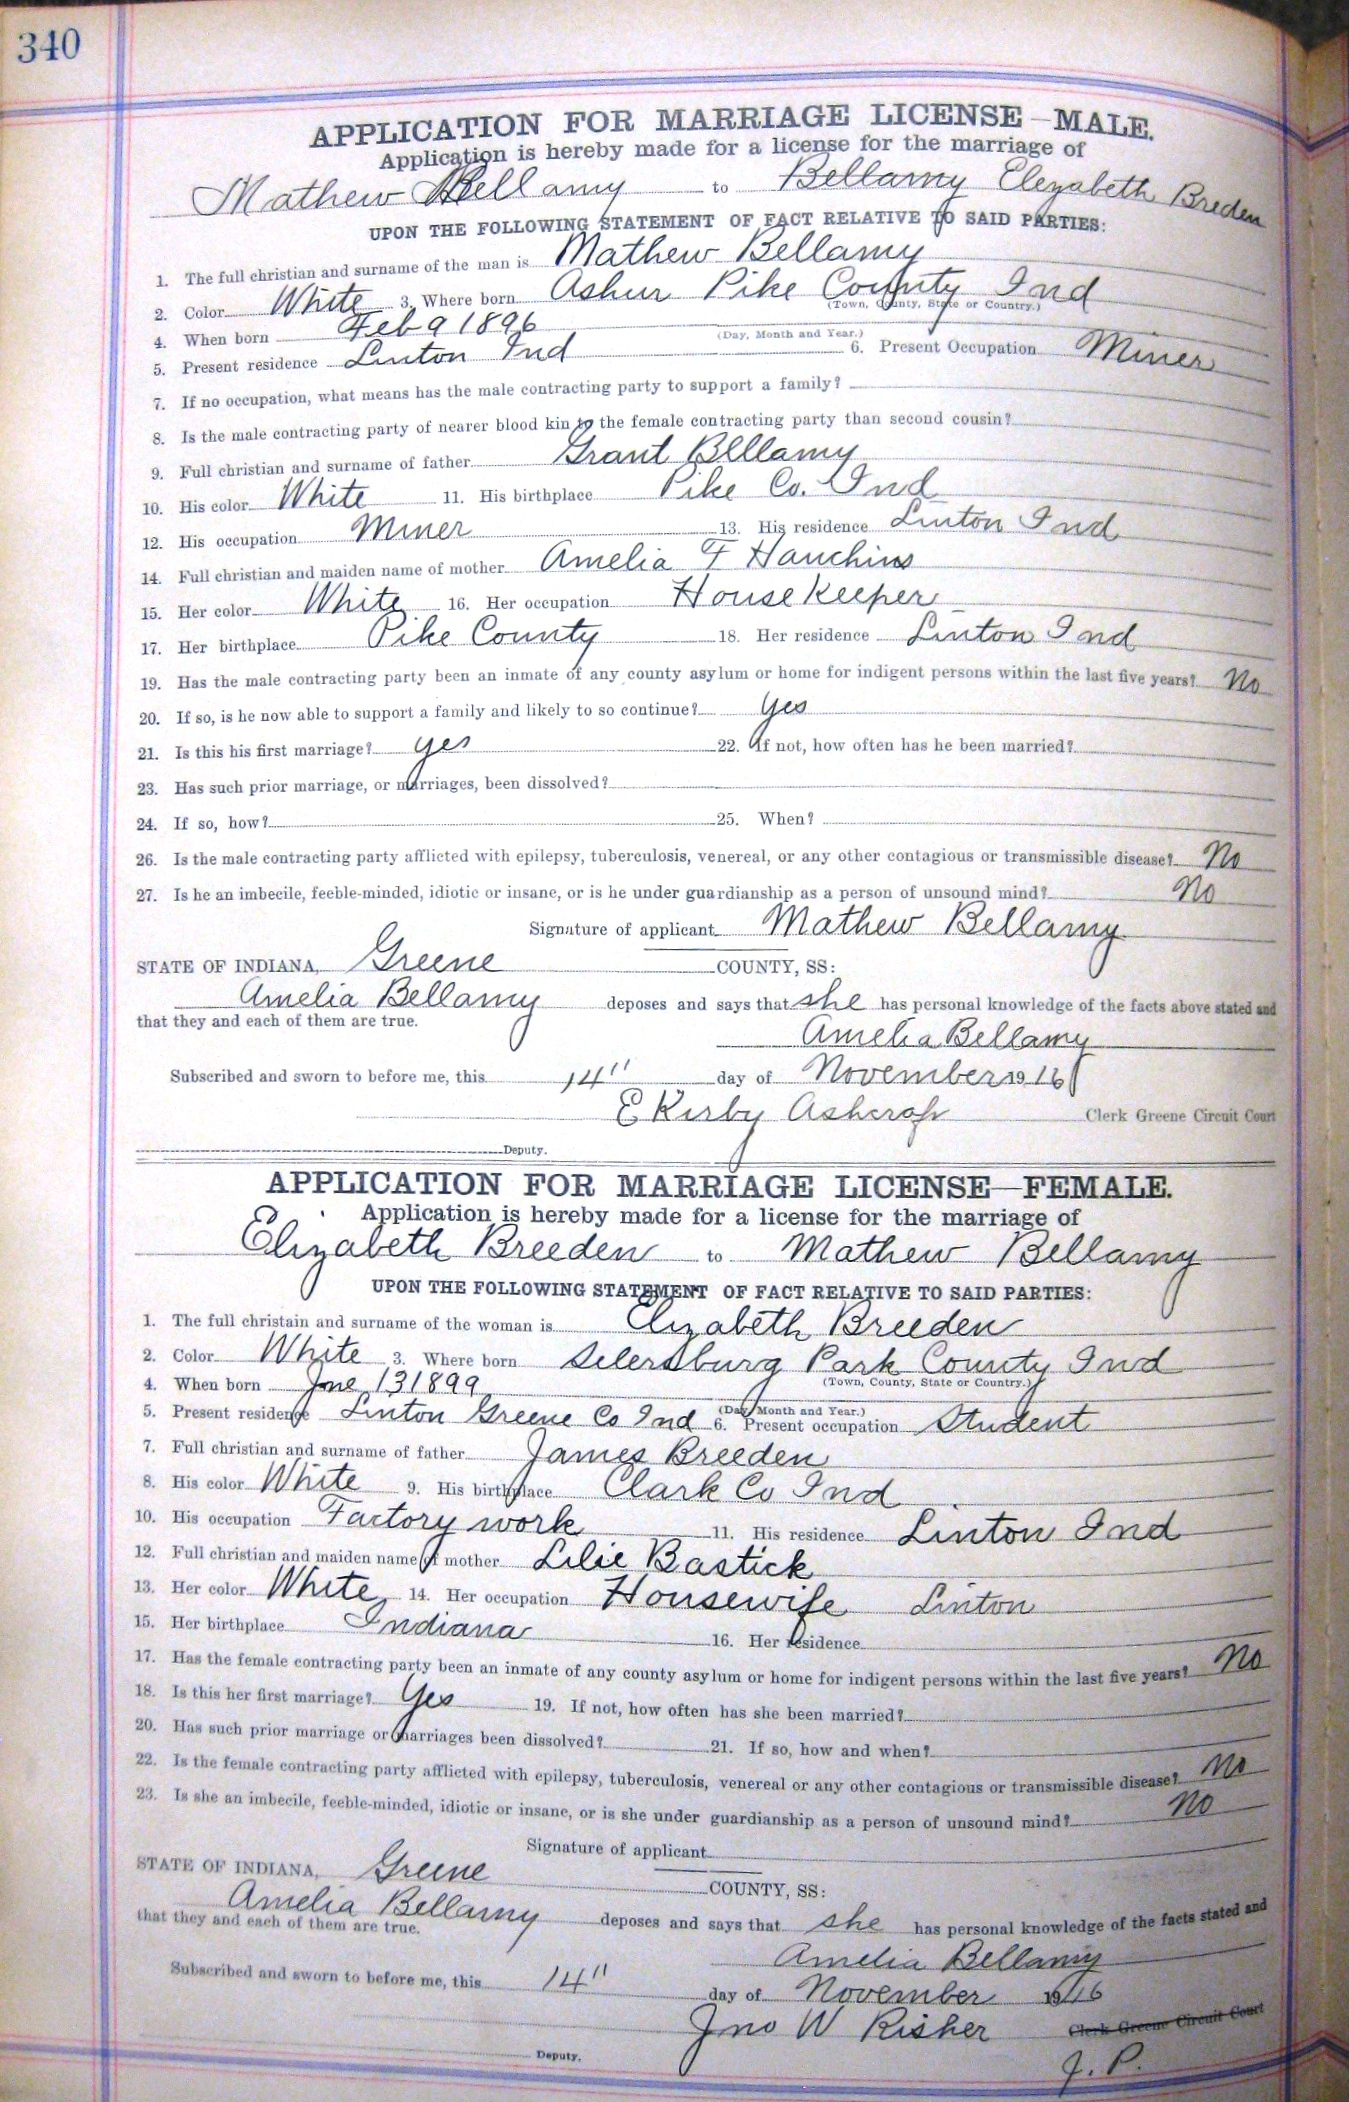 340
APPLICATION FOR MARRIAGE LICENSE—MALE.
Application is hereby made for a license for the marriage of
Mathew Bellamy to Bellamy Elezabeth Breden
UPON THE FOLLOWING STATEMENT OF FACT RELATIVE TO SAID PARTIES:
1. The full christian and surname of the man is Mathew Bellamy
2. Color White 3. Where born Ashur Pike County Ind
(Town, County, State or Country.)
4. When born Feb 9 1896
(Day, Month and Year.)
5. Present residence Linton Ind 6. Present Occupation Miner
7. If no occupation, what means has the male contracting party to support a family?
8. Is the male contracting party of nearer blood kin to the female contracting party than second cousin?
9. Full christian and surname of father Grant Bellamy
10. His color White 11. His birthplace Pike Co. Ind
12. His occupation Miner 13. His residence Linton Ind
14. Full christian and maiden name of mother Amelia F Hauchins
15. Her color White 16. Her occupation House Keeper
17. Her birthplace Pike County 18. Her residence Linton Ind
19. Has the male contracting party been an inmate of any county asylum or home for indigent persons within the last five years? No
20. If so, is he now able to support a family and likely to so continue? Yes
21. Is this his first marriage? yes 22. If not, how often has he been married?
23. Has such prior marriage, or marriages, been dissolved?
24. If so, how? 25. When?
26. Is the male contracting party afflicted with epilepsy, tuberculosis, venereal, or any other contagious or transmissible disease? No
27. Is he an imbecile, feeble-minded, idiotic or insane, or is he under guardianship as a person of unsound mind? No
Signature of applicant Mathew Bellamy
STATE OF INDIANA, Greene COUNTY, SS:
Amelia Bellamy deposes and says that she has personal knowledge of the facts above stated and
that they and each of them are true.
Amelia Bellamy
Subscribed and sworn to before me, this 14" day of November 1916
E Kirby Ashcraft Clerk Greene Circuit Court
Deputy.
APPLICATION FOR MARRIAGE LICENSE—FEMALE.
Application is hereby made for a license for the marriage of
Elizabeth Breeden to Mathew Bellamy
UPON THE FOLLOWING STATEMENT OF FACT RELATIVE TO SAID PARTIES:
1. The full christain and surname of the woman is Elizabeth Breeden
2. Color White 3. Where born Selersburg Park County Ind
(Town, County, State or Country.)
4. When born June 13 1899
(Day, Month and Year.)
5. Present residence Linton Greene Co Ind 6. Present occupation Student
7. Full christian and surname of father James Breeden
8. His color White 9. His birthplace Clark Co Ind
10. His occupation Factory work 11. His residence Linton Ind
12. Full christian and maiden name of mother Lilie Bastick
13. Her color White 14. Her occupation Housewife Linton
15. Her birthplace Indiana 16. Her residence
17. Has the female contracting party been an inmate of any county asylum or home for indigent persons within the last five years? No
18. Is this her first marriage? Yes 19. If not, how often has she been married?
20. Has such prior marriage or marriages been dissolved? 21. If so, how and when?
22. Is the female contracting party afflicted with epilepsy, tuberculosis, venereal or any other contagious or transmissible disease? No
23. Is she an imbecile, feeble-minded, idiotic or insane, or is she under guardianship as a person of unsound mind? No
Signature of applicant
STATE OF INDIANA, Greene COUNTY, SS:
Amelia Bellamy deposes and says that she has personal knowledge of the facts stated and
that they and each of them are true.
Amelia Bellamy
Subscribed and sworn to before me, this 14" day of November 1916
Jno W Risher Clerk Greene Circuit Court
Deputy. J. P.